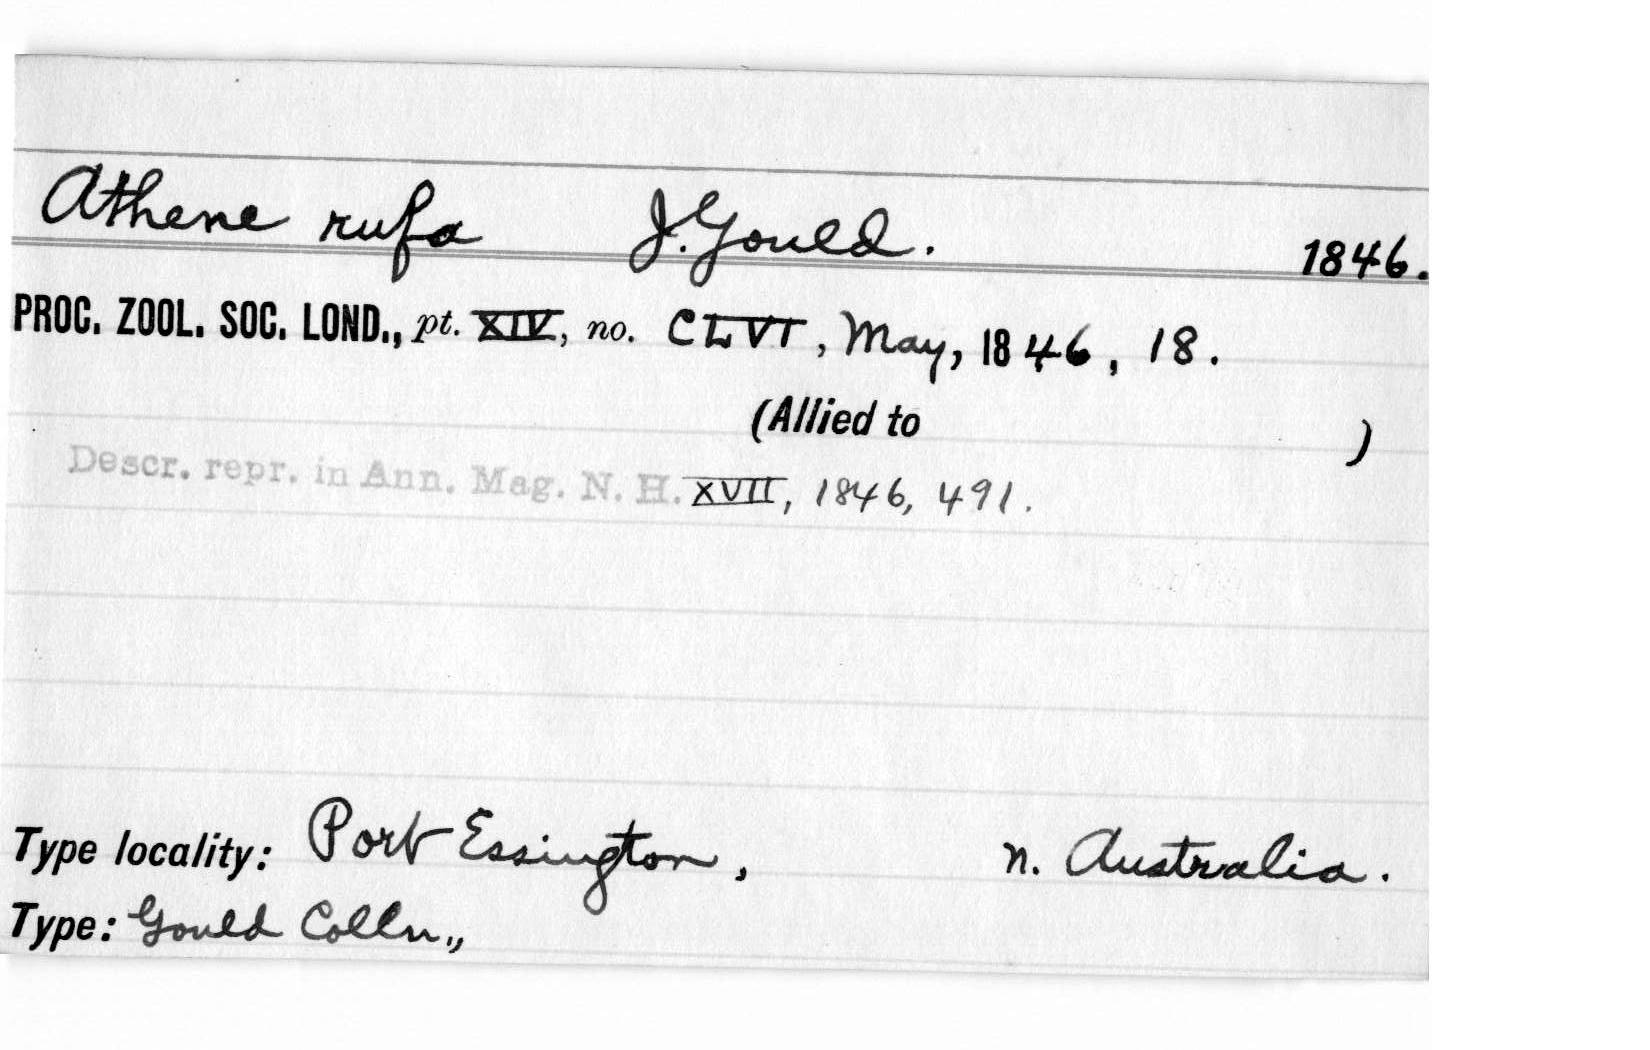 Athene rufa J. Gould. 1846.
PROC. ZOOL. SOC. LOND., pt. XIV, no. CLVI, May, 1846, 18.
(Allied to )
Descr. repr. in Ann. Mag. N. H. XVII, 1846, 491.
Type locality: Port Essington, n. Australia.
Type: Gould Colln.,,